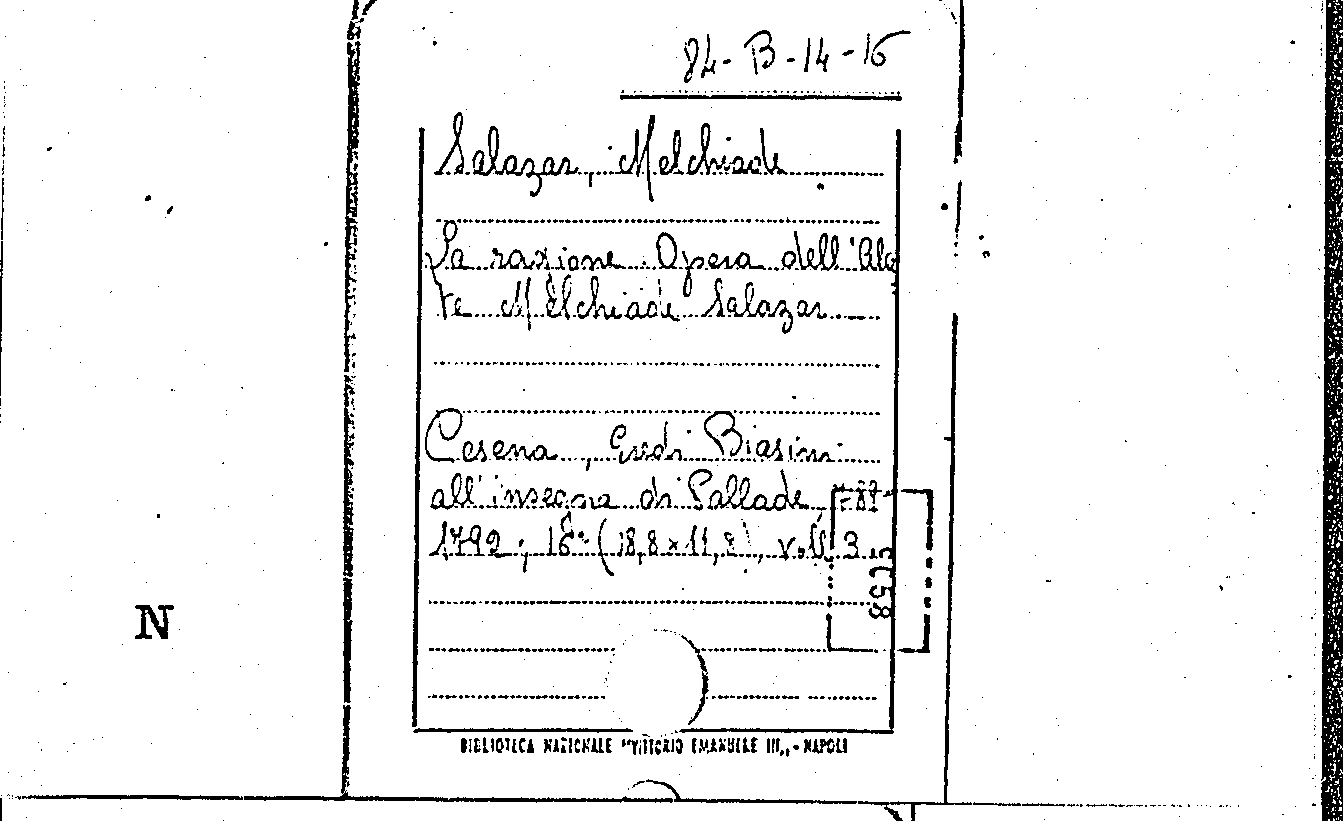 84-B-14-15
Salazar, Melchiade
La razione. Opera dell'Aba
te Melchiade Salazar.
Cesena, Eredi Biasini
all'insegna di Pallade,
1792; 16° (18,8x11,8), voll. 3
N
BIBLIOTECA NAZIONALE "VITTORIO EMANUELE III„ - NAPOLI